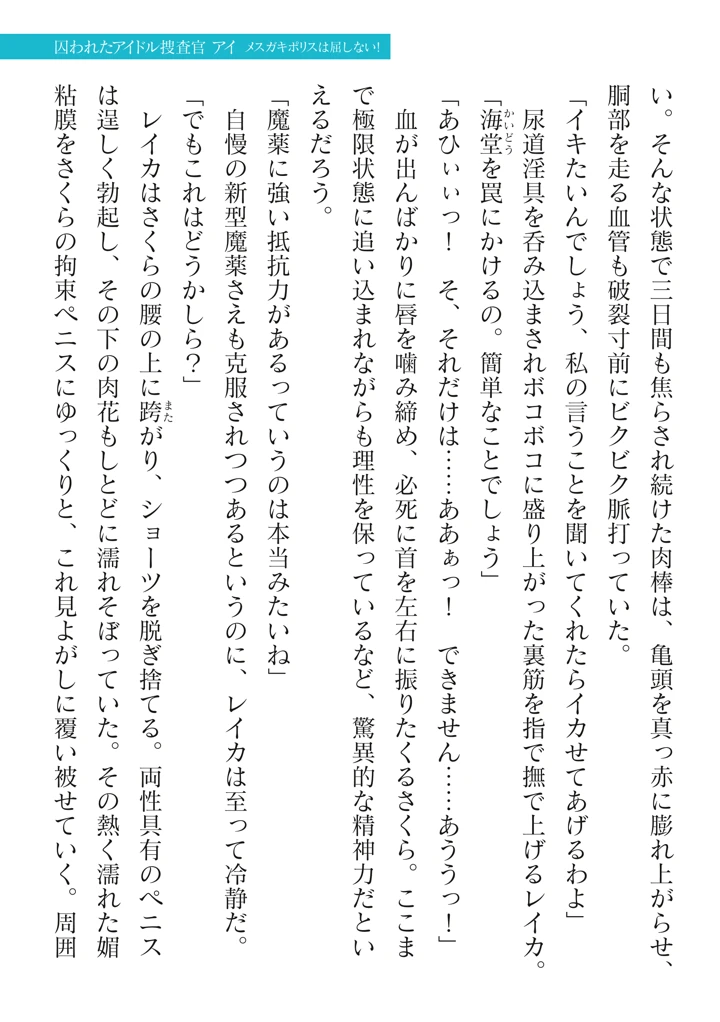 囚われたアイドル捜査官 アイ メスガキポリスは屈しない!
い。そんな状態で三日間も焦らされ続けた肉棒は、亀頭を真っ赤に膨れ上がらせ、
胴部を走る血管も破裂寸前にビクビク脈打っていた。
「イキたいんでしょう、私の言うことを聞いてくれたらイカせてあげるわよ」
尿道淫具を呑み込まされボコボコに盛り上がった裏筋を指で撫で上げるレイカ。
「海堂を罠にかけるの。簡単なことでしょう」
かいどう
「あひぃぃっ! そ、それだけは……ああぁっ! できません……あううっ!」
血が出んばかりに唇を噛み締め、必死に首を左右に振りたくるさくら。ここま
で極限状態に追い込まれながらも理性を保っているなど、驚異的な精神力だとい
えるだろう。
「魔薬に強い抵抗力があるっていうのは本当みたいね」
自慢の新型魔薬さえも克服されつつあるというのに、レイカは至って冷静だ。
「でもこれはどうかしら?」
レイカはさくらの腰の上に跨がり、ショーツを脱ぎ捨てる。両性具有のペニス
また
は逞しく勃起し、その下の肉花もしとどに濡れそぼっていた。その熱く濡れた媚
粘膜をさくらの拘束ペニスにゆっくりと、これ見よがしに覆い被せていく。周囲